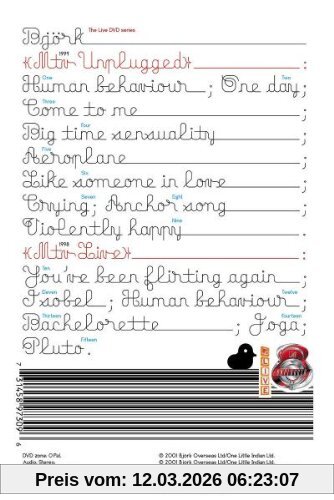 Björk The Live DVD series
1994
{Mtv Unplugged} :
One Two
Human behaviour ; One day;
Three
Come to me :
Four
Big time sensuality :
Five
Aeroplane :
Six
Like someone in love :
Seven Eight
Crying; Anchor song ;
Nine
Violently happy .
1998
{Mtv Live} :
Ten
You've been flirting again ;
Eleven Twelve
Isobel ; Human behaviour ;
Thirteen Fourteen
Bachelorette ; Joga;
Fifteen
Pluto.
7 31458 97309 6
DVD zone: 0 PAL
Audio, Stereo.
℗ 2001 Björk Overseas Ltd/One Little Indian Ltd.
© 2001 Björk Overseas Ltd/One Little Indian Ltd.
Preis vom: 12.03.2026 06:23:07